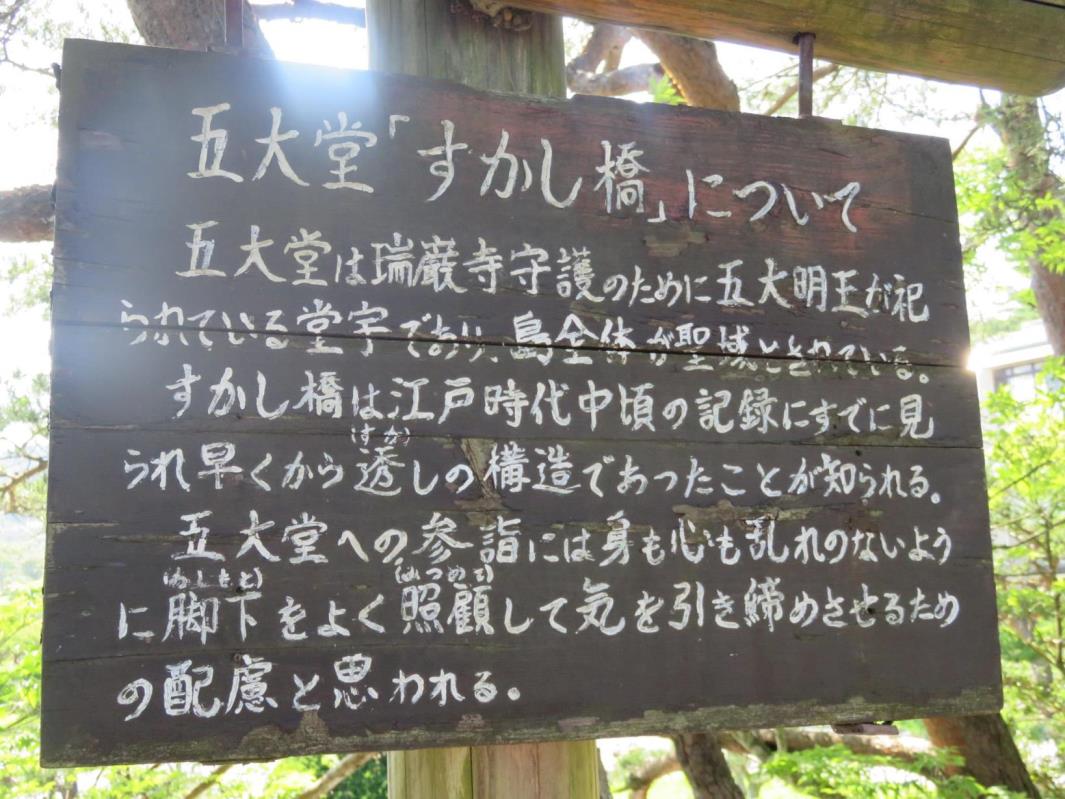 五大堂「すかし橋」について
五大堂は瑞巌寺守護のために五大明王が祀
られている堂宇であり、島全体が聖域とされている。
すかし橋は江戸時代中頃の記録にすでに見
(すか)
られ早くから透しの構造であったことが知られる。
五大堂への参詣には身も心も乱れのないよう
(あしもと)
(みつめて)
に脚下をよく照顧して気を引き締めさせるため
の配慮と思われる。